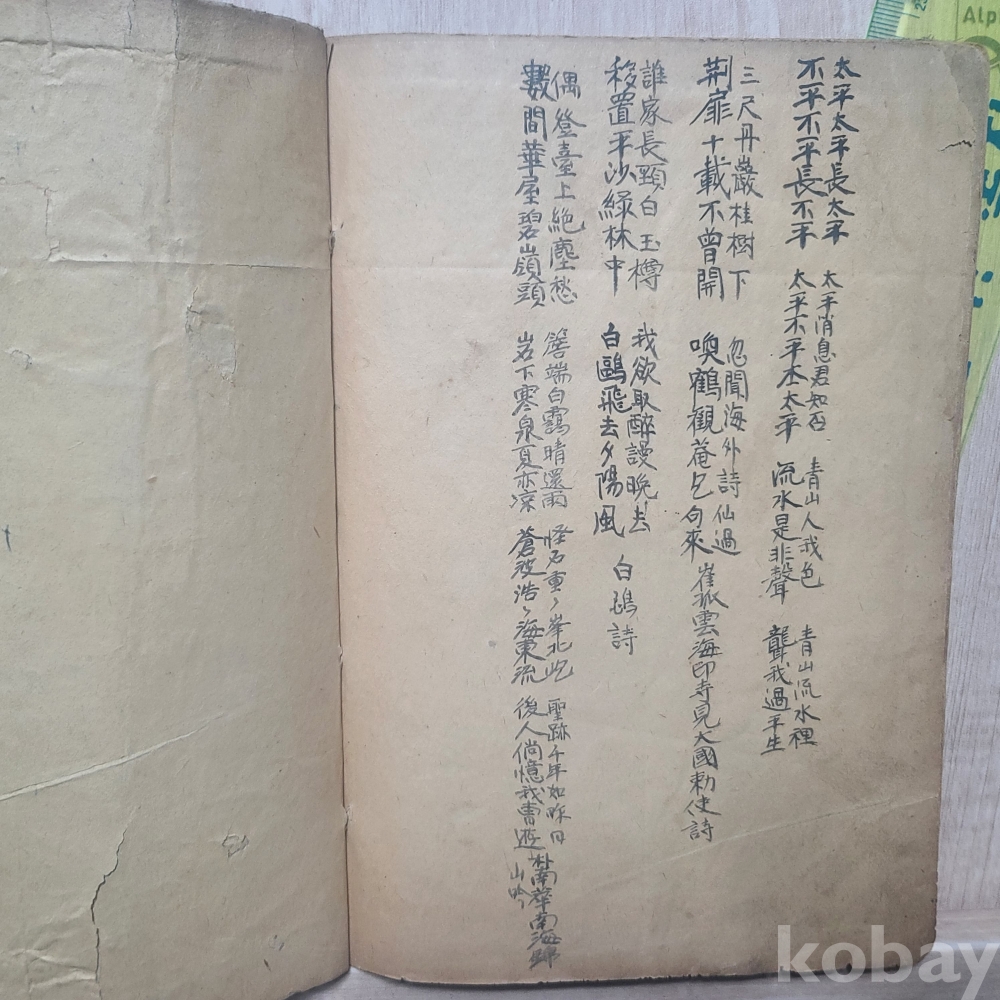 太平太平長太平 太平消息君知否 青山人我色 青山流水裡
不平不平長不平 太平不平丕太平 流水是非聲 聾我過平生
三尺丹巖桂樹下 忽聞海外詩仙過
荆扉十載不曾開 喚鶴觀菴乞句來 崔孤雲海印寺見大國勅使詩
誰家長頸白玉樽 我欲取醉謾晩去
移置平沙綠林中 白鷗飛去夕陽風 白鷗詩
偶登臺上絶塵愁 簷端白靄晴還雨 怪石重々峯北屹 聖跡千年如昨日 朴南華南海歸
數間華屋碧嶺頭 岩下寒泉夏亦凉 蒼波浩々海東流 後人倘憶我曺遊 山吟
Alp
kobay